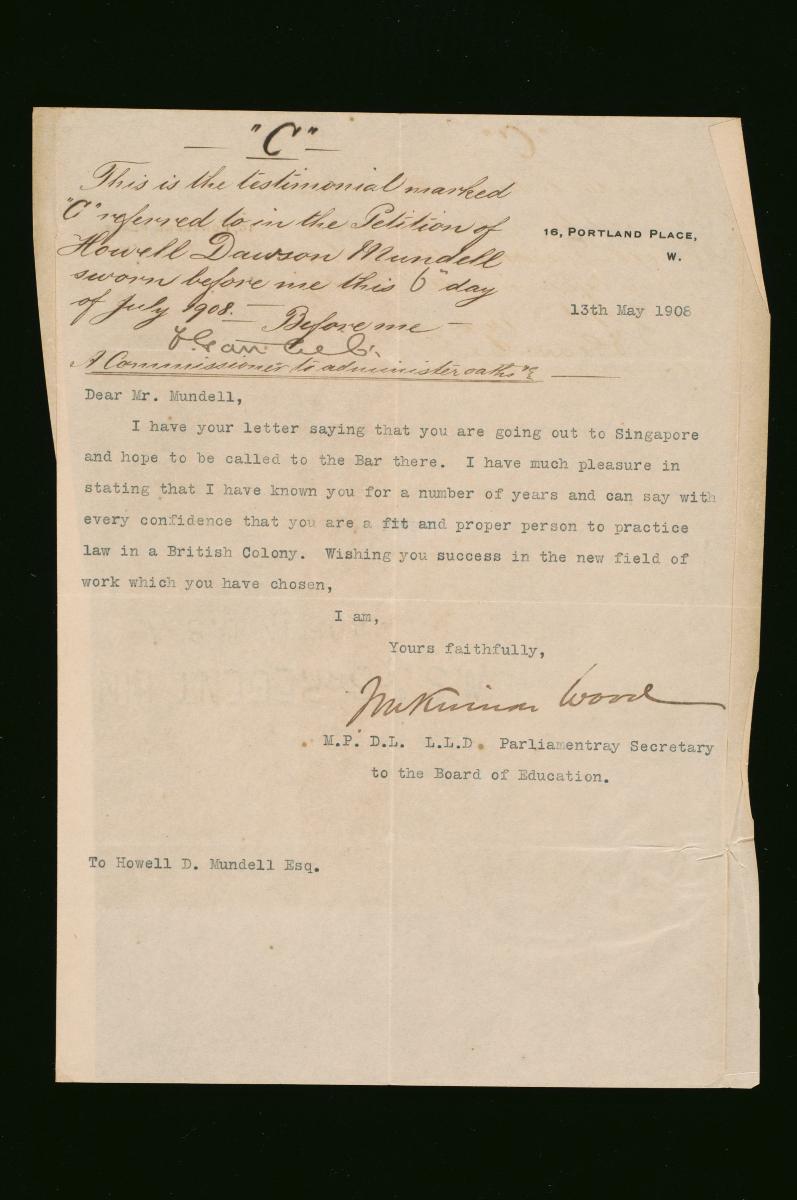 "C"
This is the testimonial marked
"C" referred to in the Petition of
Howell Dawson Mundell
sworn before me this 6" day
of July 1908.
Before me
A Commissioner to administer oaths &c
16, PORTLAND PLACE,
W.
13th May 1908
Dear Mr. Mundell,
I have your letter saying that you are going out to Singapore
and hope to be called to the Bar there. I have much pleasure in
stating that I have known you for a number of years and can say with
every confidence that you are a fit and proper person to practice
law in a British Colony. Wishing you success in the new field of
work which you have chosen,
I am,
Yours faithfully,
McKinnon Wood
M.P. D.L. L.L.D. Parliamentray Secretary
to the Board of Education.
To Howell D. Mundell Esq.